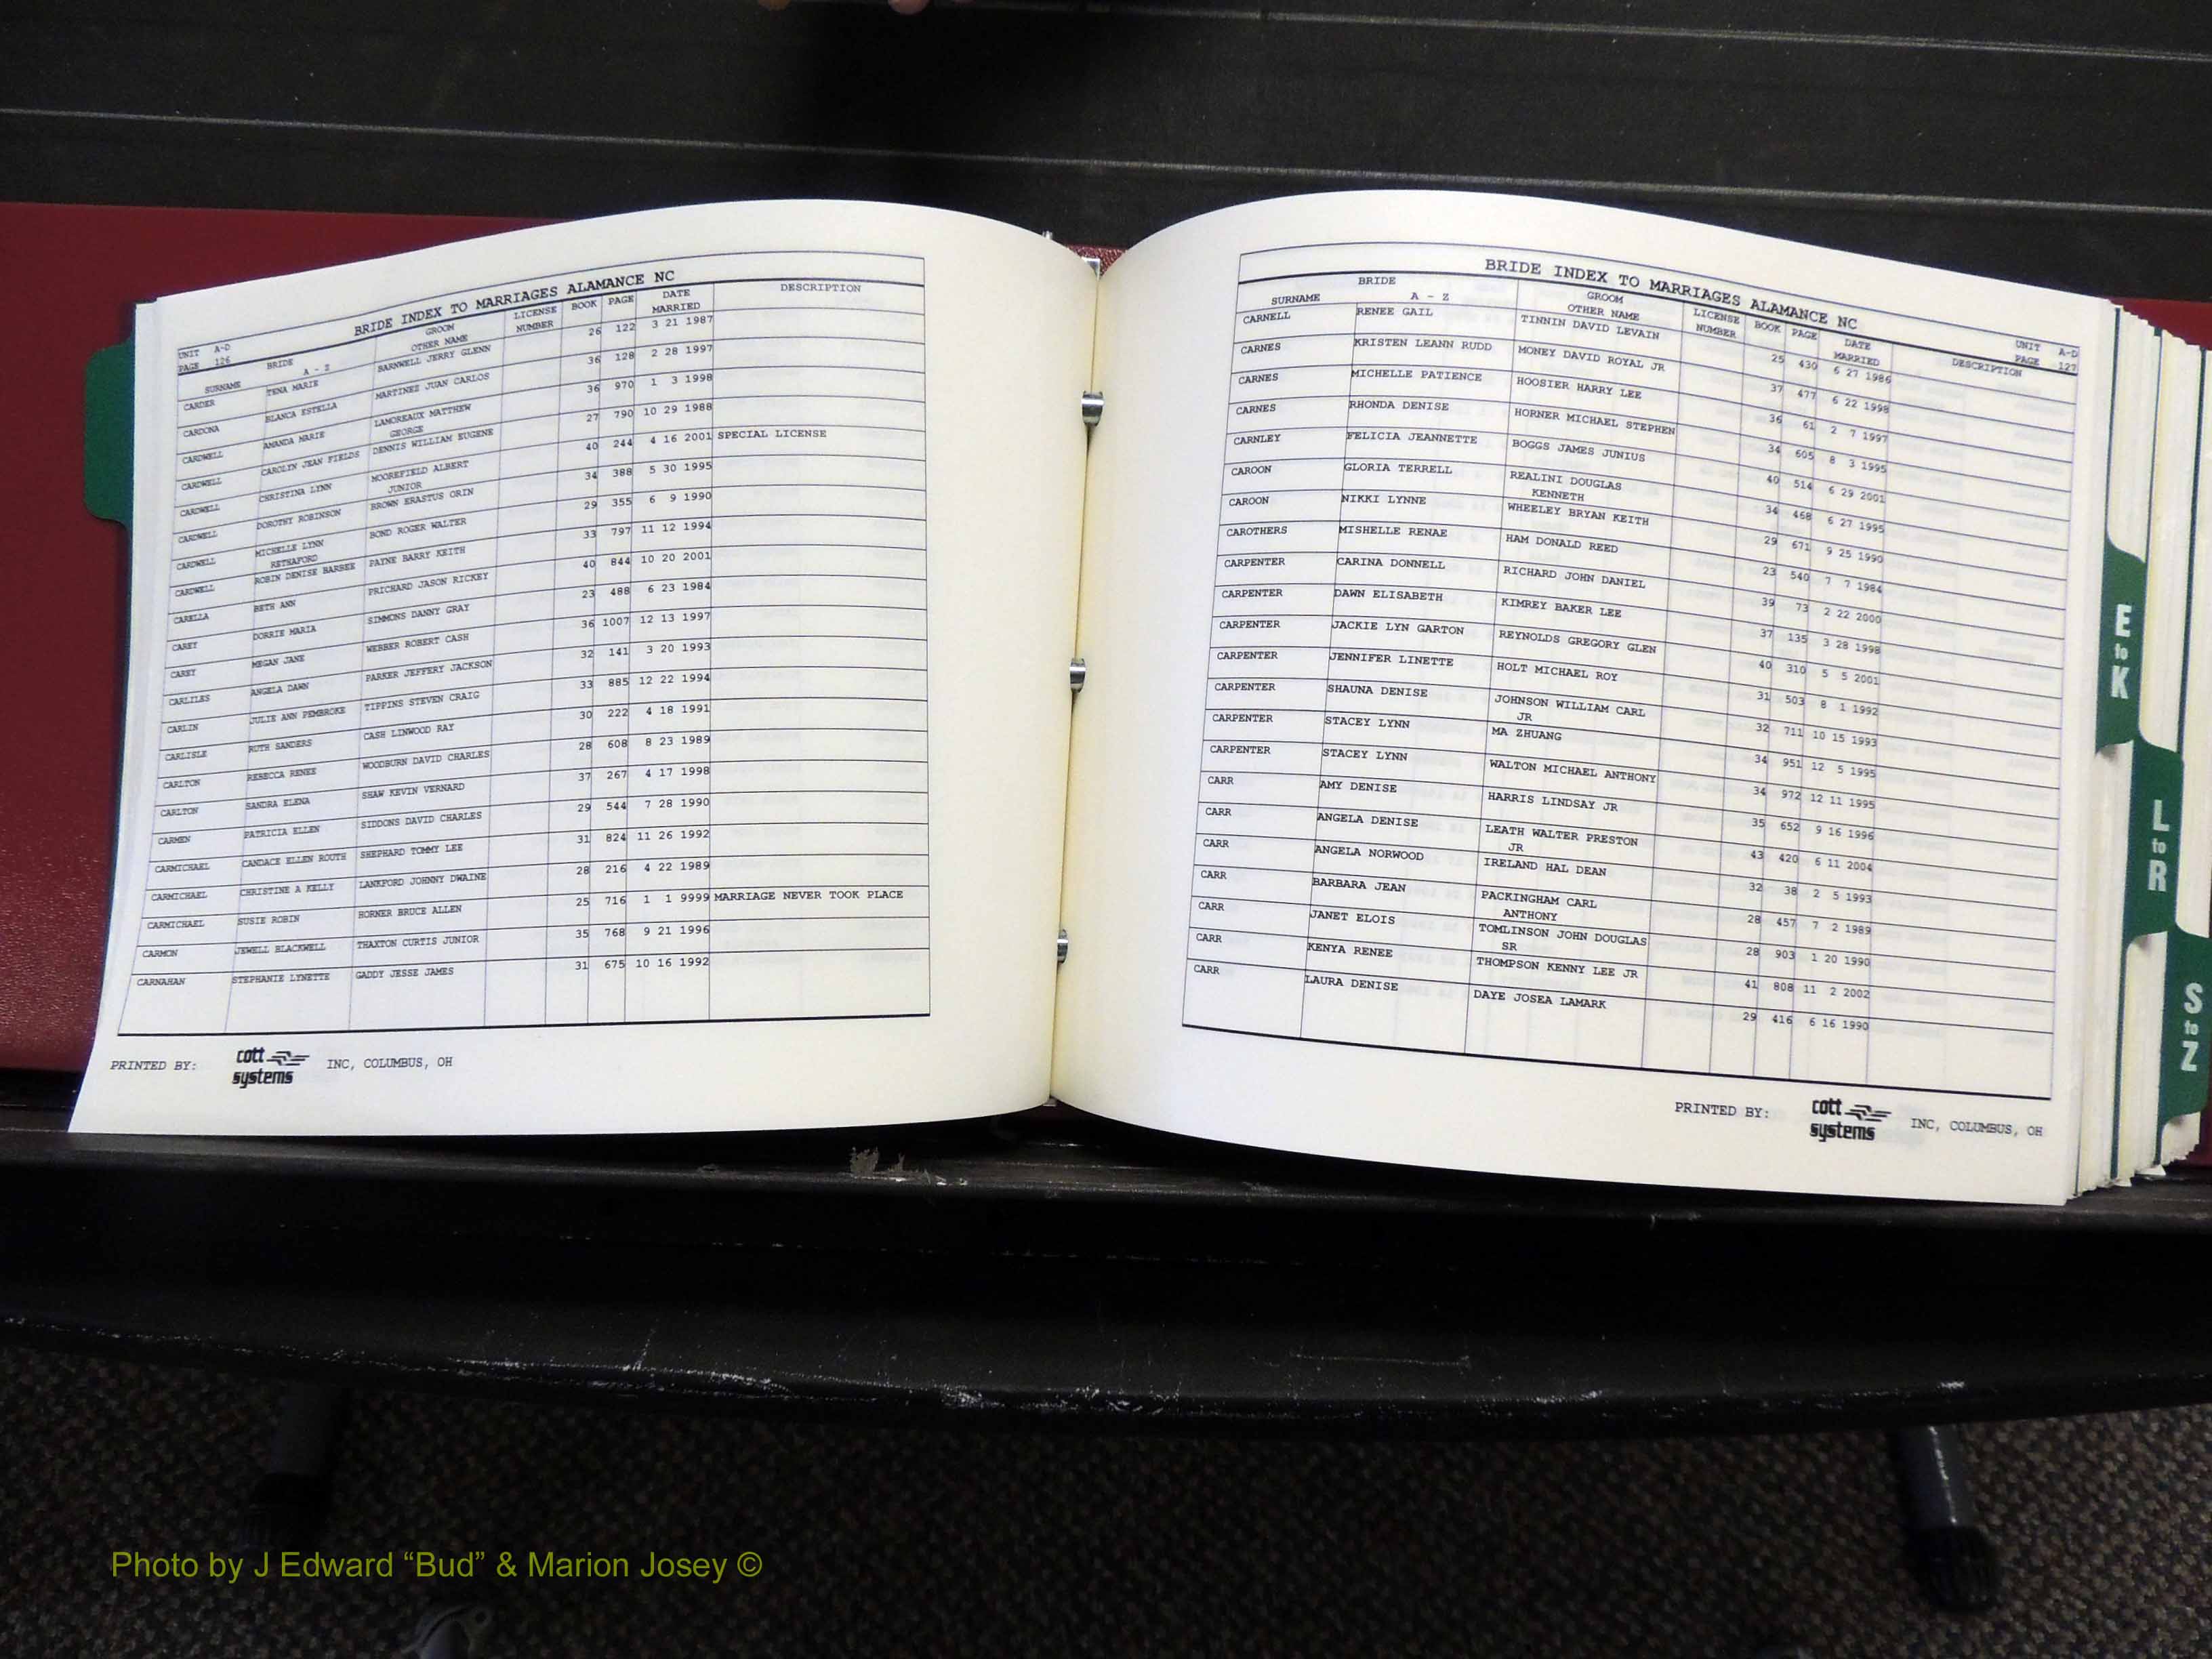 BRIDE INDEX TO MARRIAGES ALAMANCE NC
UNIT A-D
PAGE 126
BRIDE GROOM LICENSE BOOK PAGE DATE DESCRIPTION
SURNAME A - Z OTHER NAME NUMBER MARRIED
CARDER TENA MARIE BARNWELL JERRY GLENN 26 122 3 21 1987
CARDONA BLANCA ESTELLA MARTINEZ JUAN CARLOS 36 128 2 28 1997
CARDWELL AMANDA MARIE LAMOREAUX MATTHEW 36 970 1 3 1998
GEORGE
CARDWELL CAROLYN JEAN FIELDS DENNIS WILLIAM EUGENE 27 790 10 29 1988
CARDWELL CHRISTINA LYNN MOOREFIELD ALBERT 40 244 4 16 2001 SPECIAL LICENSE
JUNIOR
CARDWELL DOROTHY ROBINSON BROWN ERASTUS ORIN 34 388 5 30 1995
CARDWELL MICHELLE LYNN BOND ROGER WALTER 29 355 6 9 1990
RETHAFORD
CARDWELL ROBIN DENISE BARBEE PAYNE BARRY KEITH 33 797 11 12 1994
CARELLA BETH ANN PRICHARD JASON RICKEY 40 844 10 20 2001
CAREY DORRIE MARIA SIMMONS DANNY GRAY 23 488 6 23 1984
CAREY MEGAN JANE WEBBER ROBERT CASH 36 1007 12 13 1997
CARLILES ANGELA DAWN PARKER JEFFERY JACKSON 32 141 3 20 1993
CARLIN JULIE ANN PEMBROKE TIPPINS STEVEN CRAIG 33 885 12 22 1994
CARLISLE RUTH SANDERS CASH LINWOOD RAY 30 222 4 18 1991
CARLTON REBECCA RENEE WOODBURN DAVID CHARLES 28 608 8 23 1989
CARLTON SANDRA ELENA SHAW KEVIN VERNARD 37 267 4 17 1998
CARMEN PATRICIA ELLEN SIDDONS DAVID CHARLES 29 544 7 28 1990
CARMICHAEL CANDACE ELLEN ROUTH SHEPHARD TOMMY LEE 31 824 11 26 1992
CARMICHAEL CHRISTINE A KELLY LANKFORD JOHNNY DWAINE 28 216 4 22 1989
CARMICHAEL SUSIE ROBIN HORNER BRUCE ALLEN 25 716 1 1 9999 MARRIAGE NEVER TOOK PLACE
CARMON JEWELL BLACKWELL THAXTON CURTIS JUNIOR 35 768 9 21 1996
CARNAHAN STEPHANIE LYNETTE GADDY JESSE JAMES 31 675 10 16 1992
PRINTED BY: cott systems INC, COLUMBUS, OH
BRIDE INDEX TO MARRIAGES ALAMANCE NC
UNIT A-D
PAGE 127
BRIDE GROOM LICENSE BOOK PAGE DATE DESCRIPTION
SURNAME A - Z OTHER NAME NUMBER MARRIED
CARNELL RENEE GAIL TINNIN DAVID LEVAIN 25 430 6 27 1986
CARNES KRISTEN LEANN RUDD MONEY DAVID ROYAL JR 37 477 6 22 1998
CARNES MICHELLE PATIENCE HOOSIER HARRY LEE 36 61 2 7 1997
CARNES RHONDA DENISE HORNER MICHAEL STEPHEN 34 605 8 3 1995
CARNLEY FELICIA JEANNETTE BOGGS JAMES JUNIUS 40 514 6 29 2001
CAROON GLORIA TERRELL REALINI DOUGLAS 34 468 6 27 1995
KENNETH
CAROON NIKKI LYNNE WHEELEY BRYAN KEITH 29 671 9 25 1990
CAROTHERS MISHELLE RENAE HAM DONALD REED 23 540 7 7 1984
CARPENTER CARINA DONNELL RICHARD JOHN DANIEL 39 73 2 22 2000
CARPENTER DAWN ELISABETH KIMREY BAKER LEE 37 135 3 28 1998
CARPENTER JACKIE LYN GARTON REYNOLDS GREGORY GLEN 40 310 5 5 2001
CARPENTER JENNIFER LINETTE HOLT MICHAEL ROY 31 503 8 1 1992
CARPENTER SHAUNA DENISE JOHNSON WILLIAM CARL 32 711 10 15 1993
JR
CARPENTER STACEY LYNN MA ZHUANG 34 951 12 5 1995
CARPENTER STACEY LYNN WALTON MICHAEL ANTHONY 34 972 12 11 1995
CARR AMY DENISE HARRIS LINDSAY JR 35 652 9 16 1996
CARR ANGELA DENISE LEATH WALTER PRESTON 43 420 6 11 2004
JR
CARR ANGELA NORWOOD IRELAND HAL DEAN 32 38 2 5 1993
CARR BARBARA JEAN PACKINGHAM CARL 28 457 7 2 1989
ANTHONY
CARR JANET ELOIS TOMLINSON JOHN DOUGLAS 28 903 1 20 1990
SR
CARR KENYA RENEE THOMPSON KENNY LEE JR 41 808 11 2 2002
CARR LAURA DENISE DAYE JOSEA LAMARK 29 416 6 16 1990
PRINTED BY: cott systems INC, COLUMBUS, OH
E to K
L to R
S to Z
Photo by J Edward “Bud” & Marion Josey ©